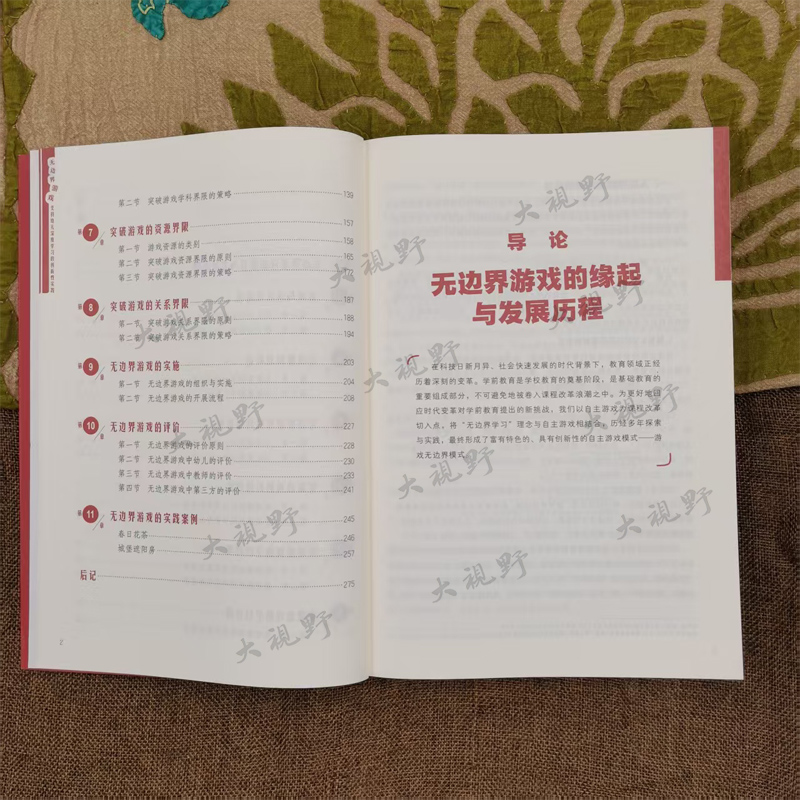 无边界游戏
第二节 突破游戏学科界限的策略 139
第7章 突破游戏的资源界限 157
第一节 游戏资源的类别 158
第二节 突破游戏资源界限的原则 165
第三节 突破游戏资源界限的策略 172
第8章 突破游戏的关系界限 187
第一节 突破游戏关系界限的原则 188
第二节 突破游戏关系界限的策略 194
第9章 无边界游戏的实施 203
第一节 无边界游戏的组织与实施 204
第二节 无边界游戏的开展流程 208
第10章 无边界游戏的评价 227
第一节 无边界游戏的评价原则 228
第二节 无边界游戏中幼儿的评价 230
第三节 无边界游戏中教师的评价 233
第四节 无边界游戏中第三方的评价 241
第11章 无边界游戏的实践案例 245
春日花茶 246
城堡遮阳屏 257
后记 275
2
导 论
无边界游戏的缘起
与发展历程
在科技日新月异、社会快速发展的时代背景下，教育领域正经
历着深刻的变革。学前教育是学校教育的奠基阶段，是基础教育的
重要组成部分，不可避免地被卷入课程改革浪潮之中。为更好地回
应时代变革对学前教育提出的新挑战，我们以自主游戏为课程改革
切入点，将“无边界学习”理念与自主游戏相融合，历经多年探索
与实践，最终形成了富有特色的、具有创新性的自主游戏模式——游
戏无边界模式。
大视野
大视野
大视野
大视野
大视野
大视野
大视野
大视野
大视野
大视野
大视野
大视野